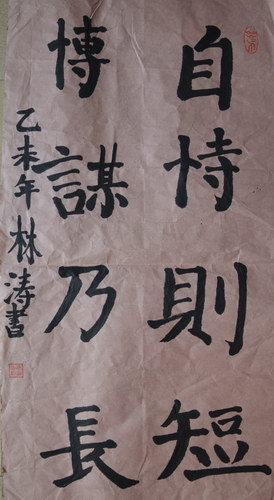 自恃則短
博謀乃長
乙未年林涛書